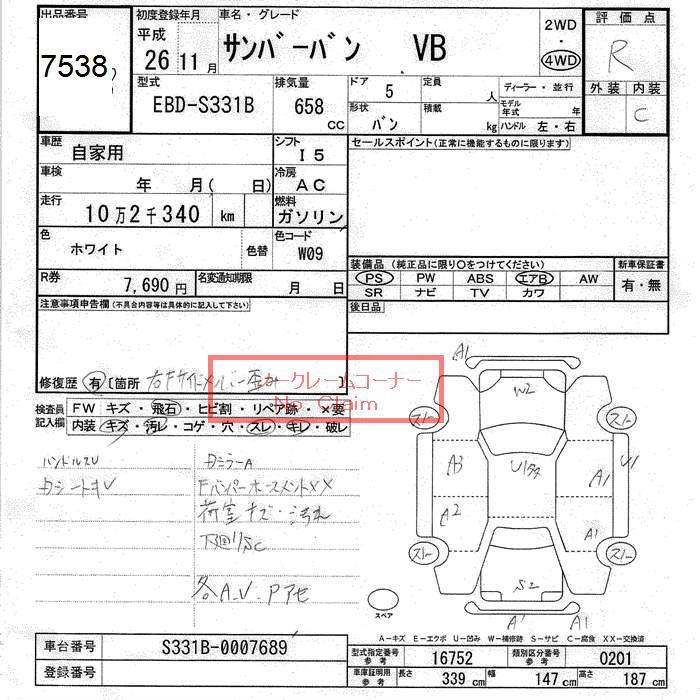 出品番号
7538
初度登録年月
平成
26 11月
車名・グレード
サンバーバン VB
2WD
・
4WD
評価点
R
外装 内装
C
型式
EBD-S331B
排気量
658
CC
ドア
5
定員
人
ディーラー・並行
形状
バン
積載
kg
モデル年式 年
ハンドル 左・右
車歴
自家用
シフト
I5
セールスポイント(正常に機能するものに限ります)
車検
年 月( 日)
冷房
AC
走行
10万2千340 km
燃料
ガソリン
色
ホワイト
色替
色コード
W09
装備品 (純正品に限り〇をつけてください)
新車保証書
PS PW ABS エアB AW
有・無
SR ナビ TV カワ
R券
7,690円
名変通知期限
月 日
後日品
注意事項申告欄(不具合内容等は具体的に記入して下さい)
修復歴 有 [箇所 右Fサイドメンバー歪み
カークレームコーナー
No Claim
検査員記入欄
FW キズ・飛石・ヒビ割・リペア跡・×要
内装 キズ・汚レ・コゲ・穴・スレ・キレ・破レ
ハンドルスレ
ミラーA
FバンパーホースメントXX
荷室キズ・汚れ
下廻りSC
各A.V.Pアセ
A1
W2
スノー スノー
A3 U1タタ A1 U1
A2 A1
スノー スノー
S2
A1
スペア
A-キズ E-エクボ U-凹み W-補修跡 S-サビ C-腐食 XX-交換済
車台番号
S331B-0007689
登録番号
型式指定番号
参考
16752
類別区分番号
参考
0201
車庫証明用
参考
長さ 339 cm
幅 147 cm
高さ 187 cm